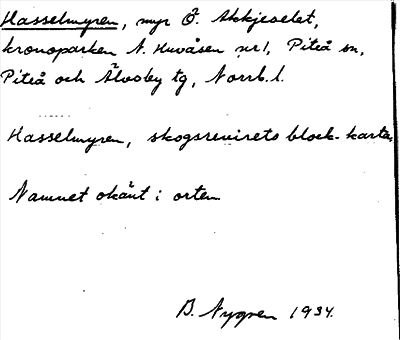 Hasselmyren, myr Ö. Akkjeselet,
kronoparken N. Huvåsen nr 1, Piteå sn,
Piteå och Älvsby tg, Norrb. l.
Hasselmyren, skogsrevirets block-karta,
Namnet okänt i orten
B. Nygren 1934.